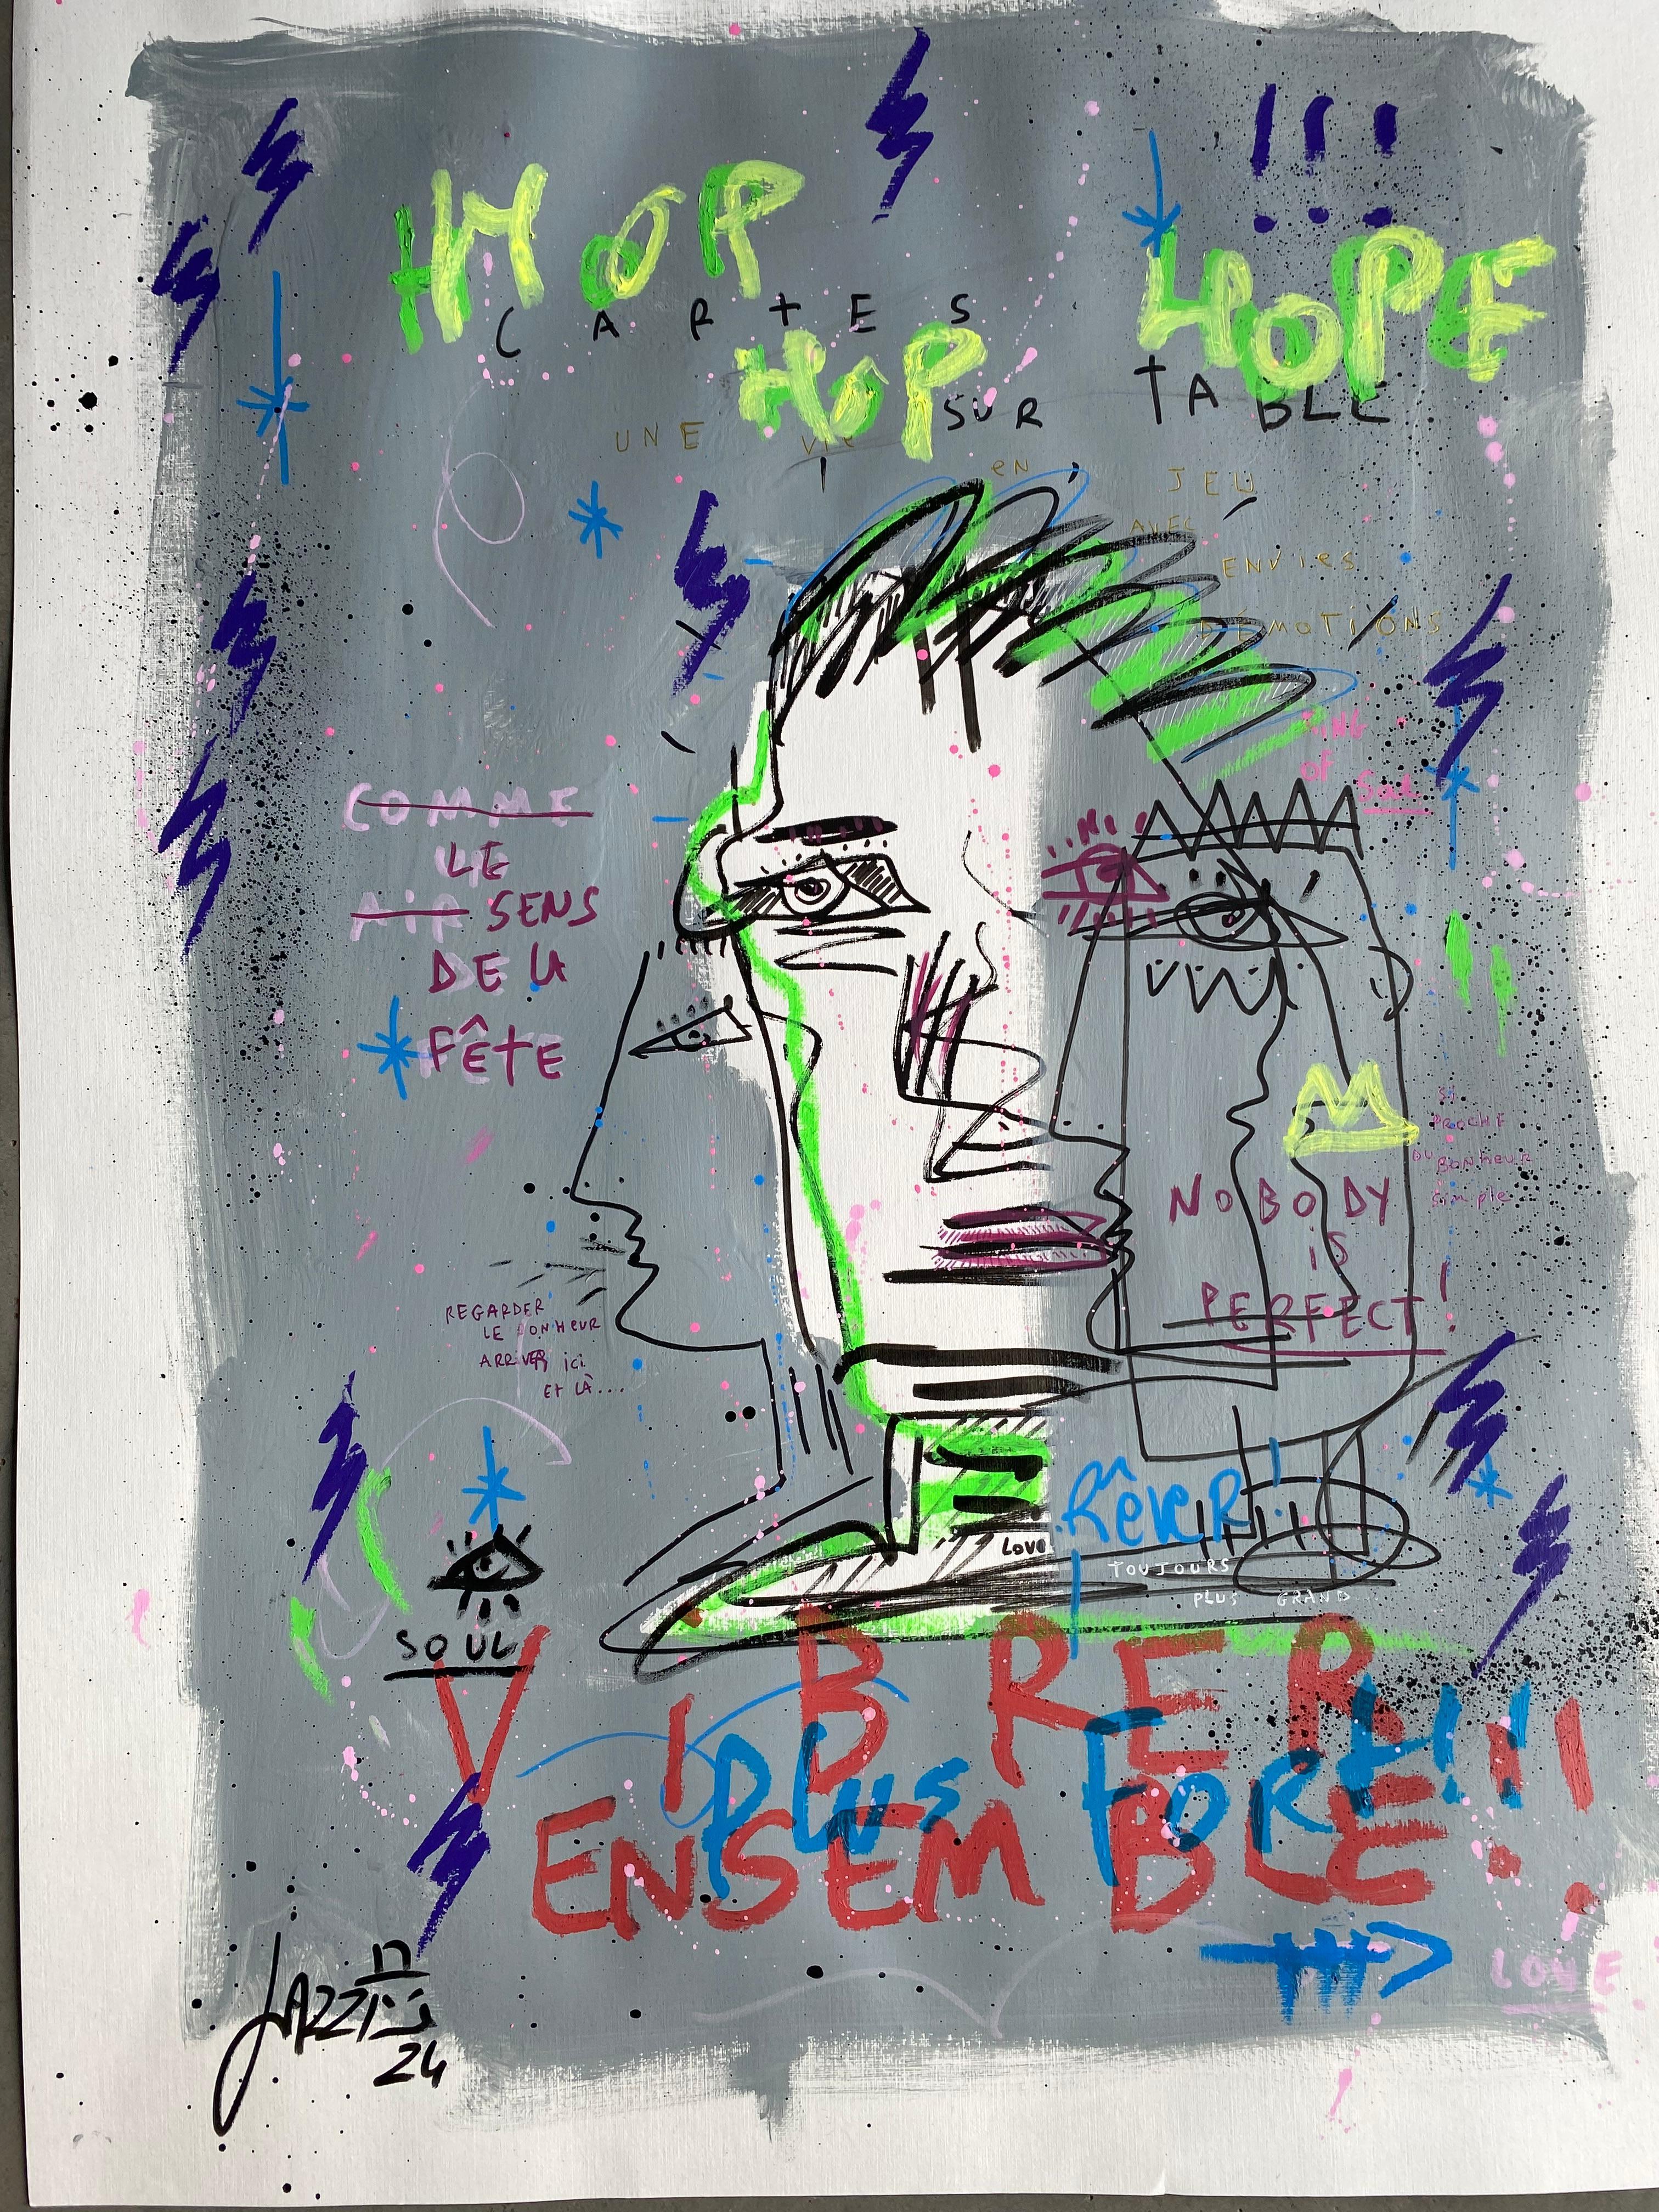 !!!
HOP
HOPE
CARTES
HOP
SUR TABLE
UNE VIE
EN JEU
AVEC
ENVIES
D'ÉMOTIONS
KING
of
COMME
LE
AIR SENS
DE LA
FÊTE
SI
PROCHE
DU BONHEUR
SIMPLE
NOBODY
IS
PERFECT!
REGARDER
LE BONHEUR
ARRIVER ICI
ET LÀ...
RÊVER!
LOVE
TOUJOURS
PLUS GRAND
SOUL
VIBRER
PLUS FORT!!!
ENSEMBLE!
LOVE
24